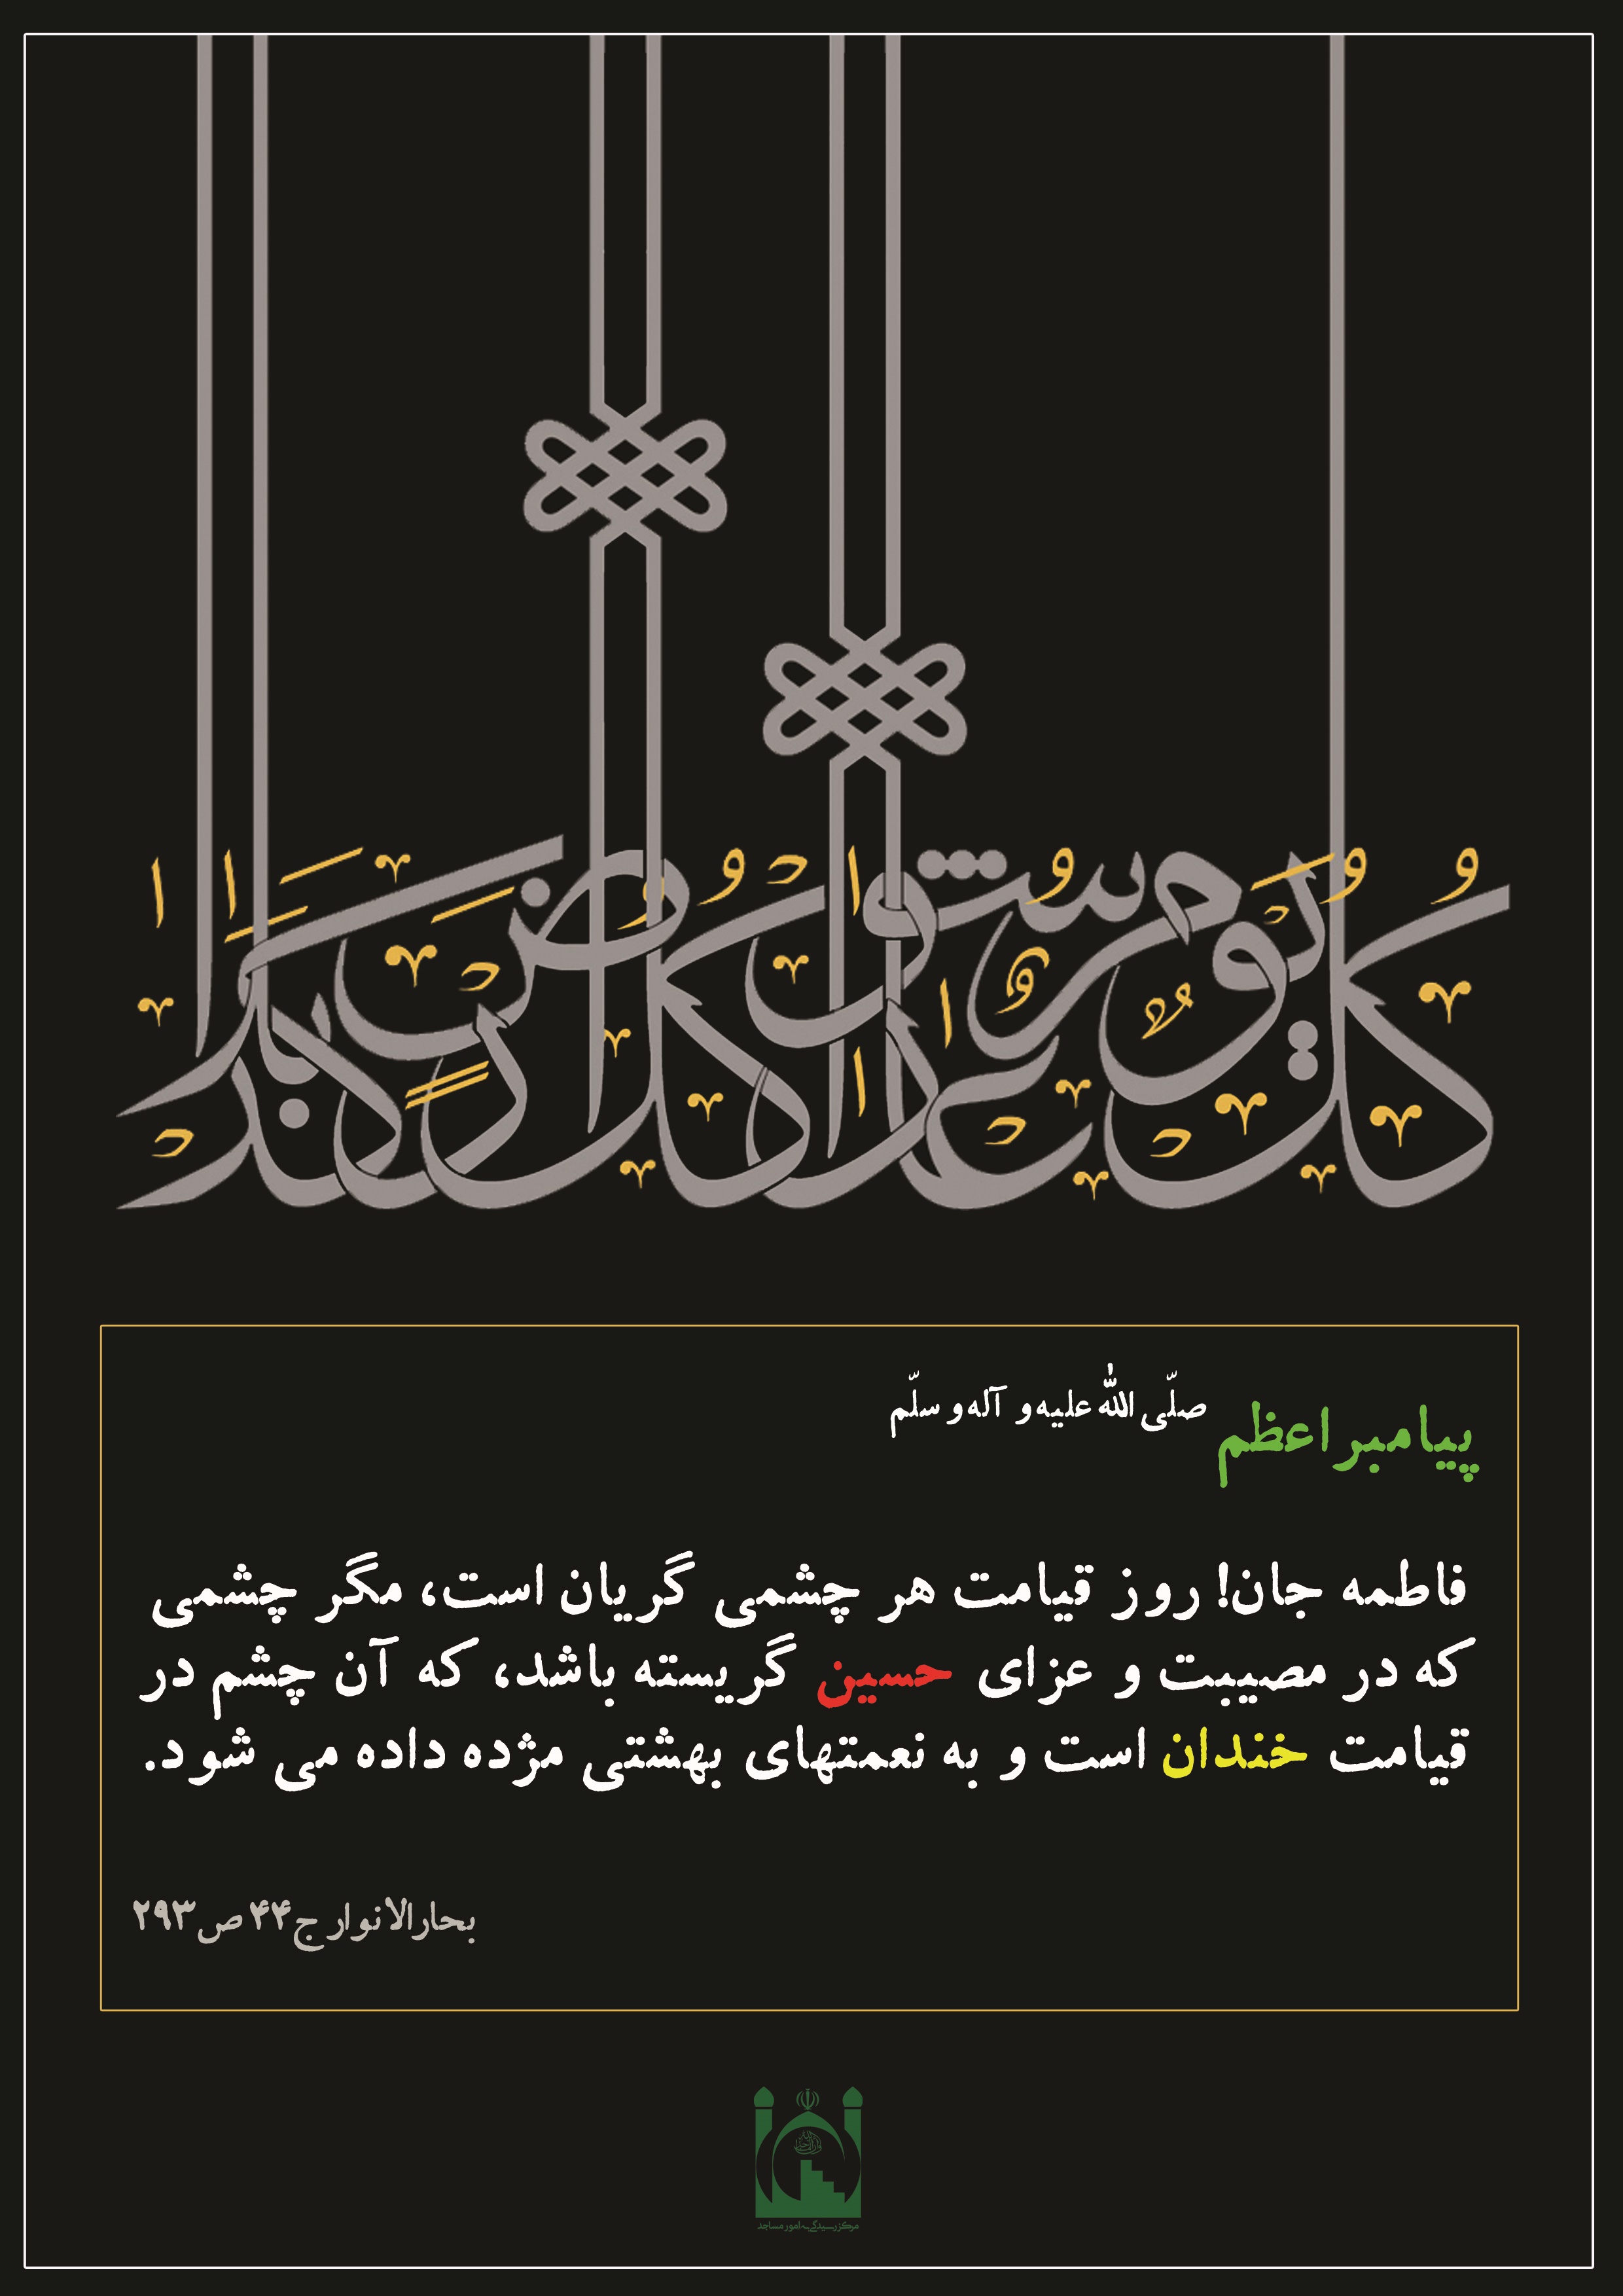 کل یوم عاشورا و کل ارض کربلا
پیامبر اعظم صلّی اللّه علیه و آله و سلّم
فاطمه جان! روز قیامت هر چشمی گریان است، مگر چشمی
که در مصیبت و عزای حسین گریسته باشد، که آن چشم در
قیامت خندان است و به نعمتهای بهشتی مژده داده می شود.
بحارالانوار ج۴۴ ص۲۹۳
مرکز رسیدگی به امور مساجد